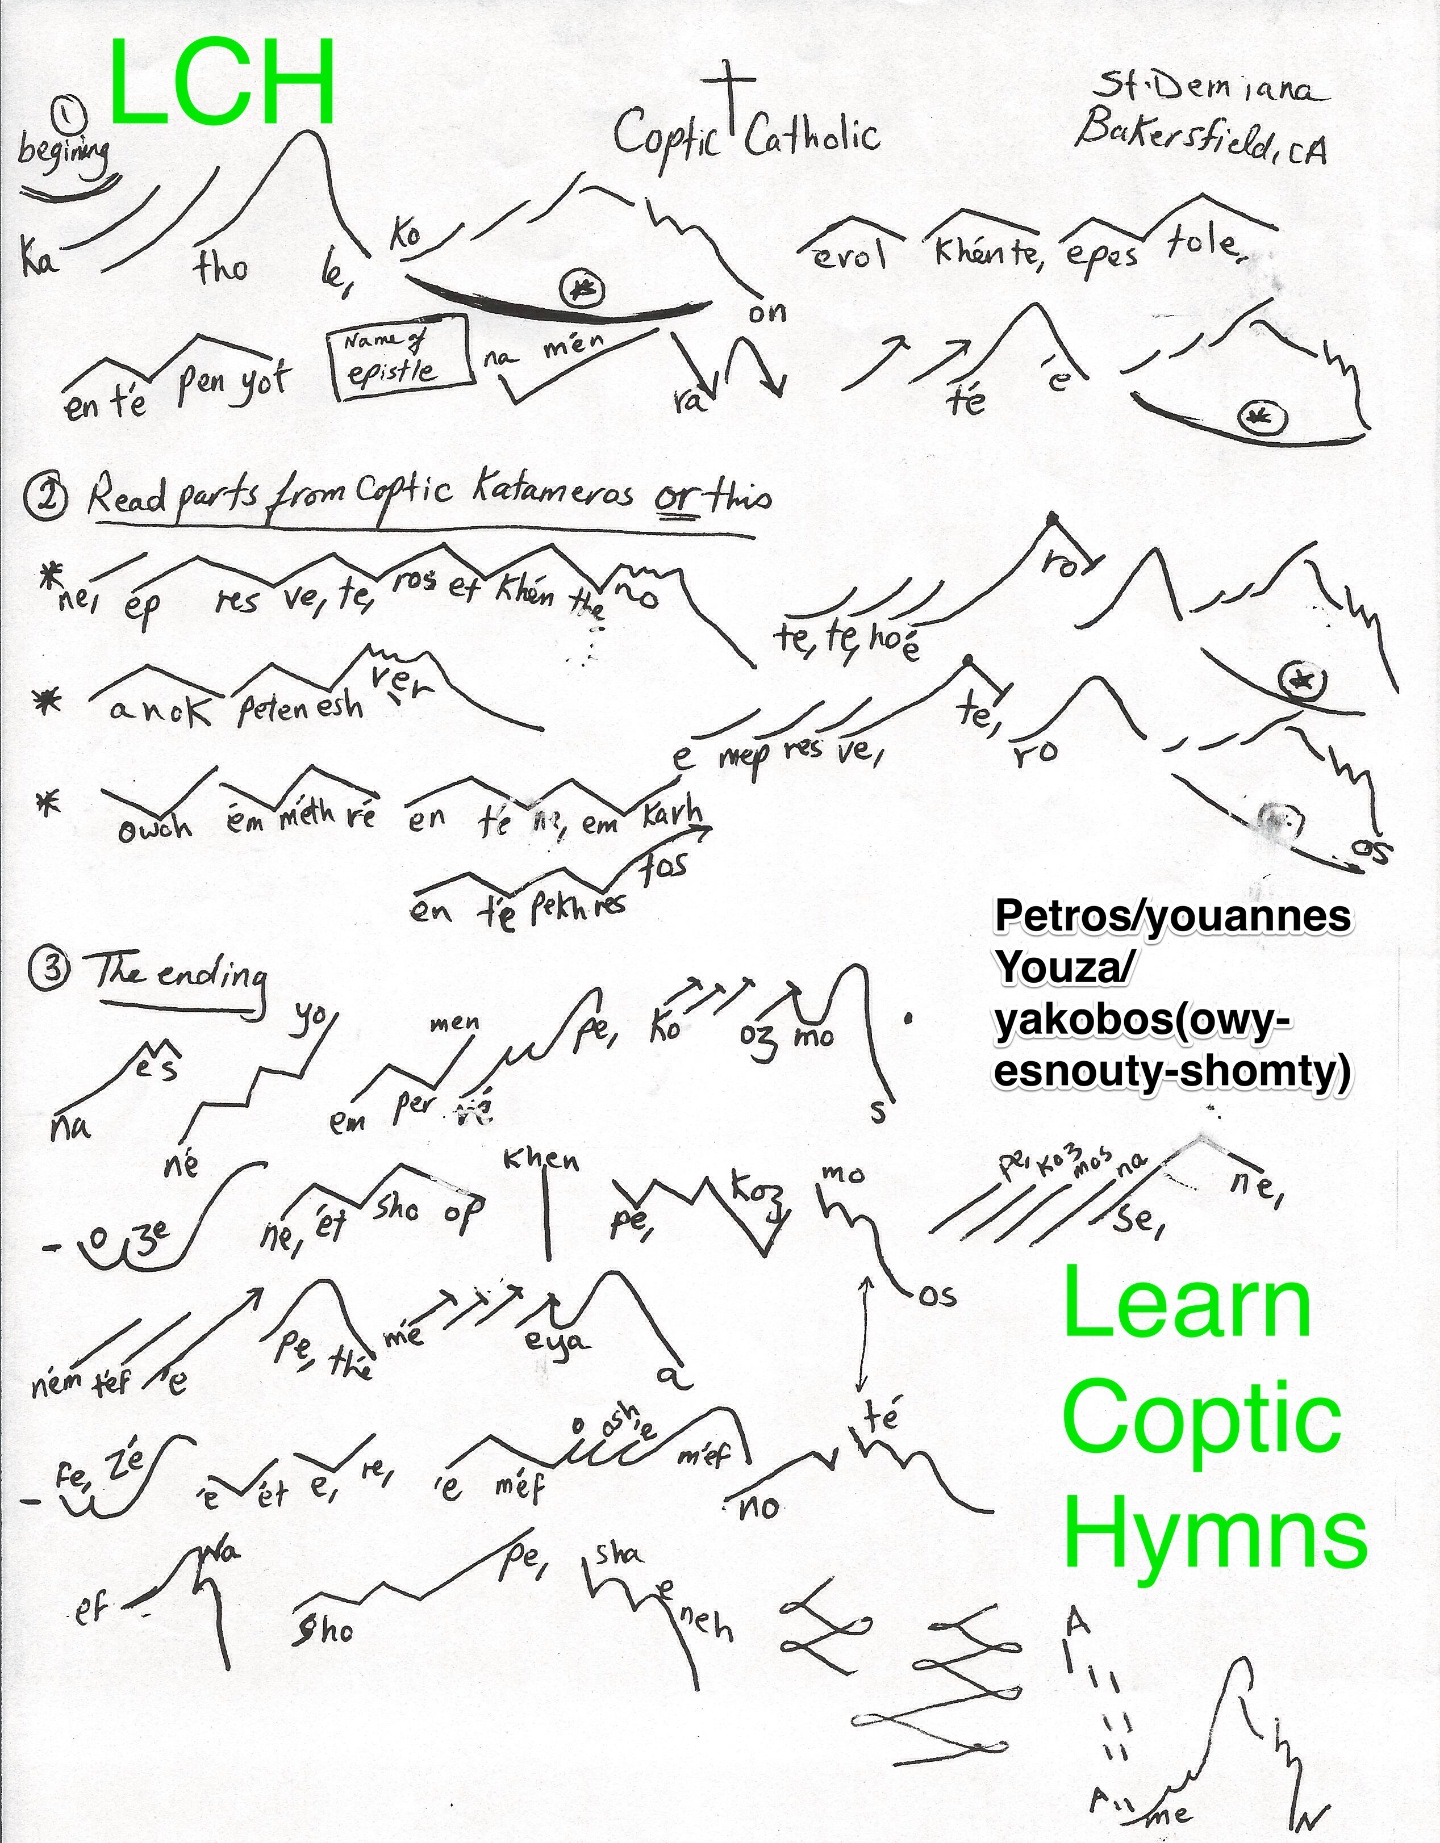 LCH
① begining
Coptic Catholic
St. Demiana
Bakersfield, CA
Ka tho le, Ko on evol Khén te, epes tole,
en té pen yot Name of epistle na mén ra té é
② Read parts from Coptic Katameros or this
* ne, ép res ve, te, ros et Khén the no te, te, ho é ro
* anok peten esh ver e mep res ve, te, ro os
* owoh ém méth ré en té ne, em Karh
en té pekh res tos
Petros/youannes
Youza/
yakobos(owy-
esnouty-shomty)
③ The ending
na és né yo em per men ré pe, Ko oz mo s
- o ze ne, ét sho op Khen pe, Koz mo os pe, koz mos na se, ne,
ném téf é pe, thé mé eya a
- fe, zé é ét e, re, é méf o osh e méf no té
ef wa sho pe, sha e neh
A
A me N
Learn
Coptic
Hymns